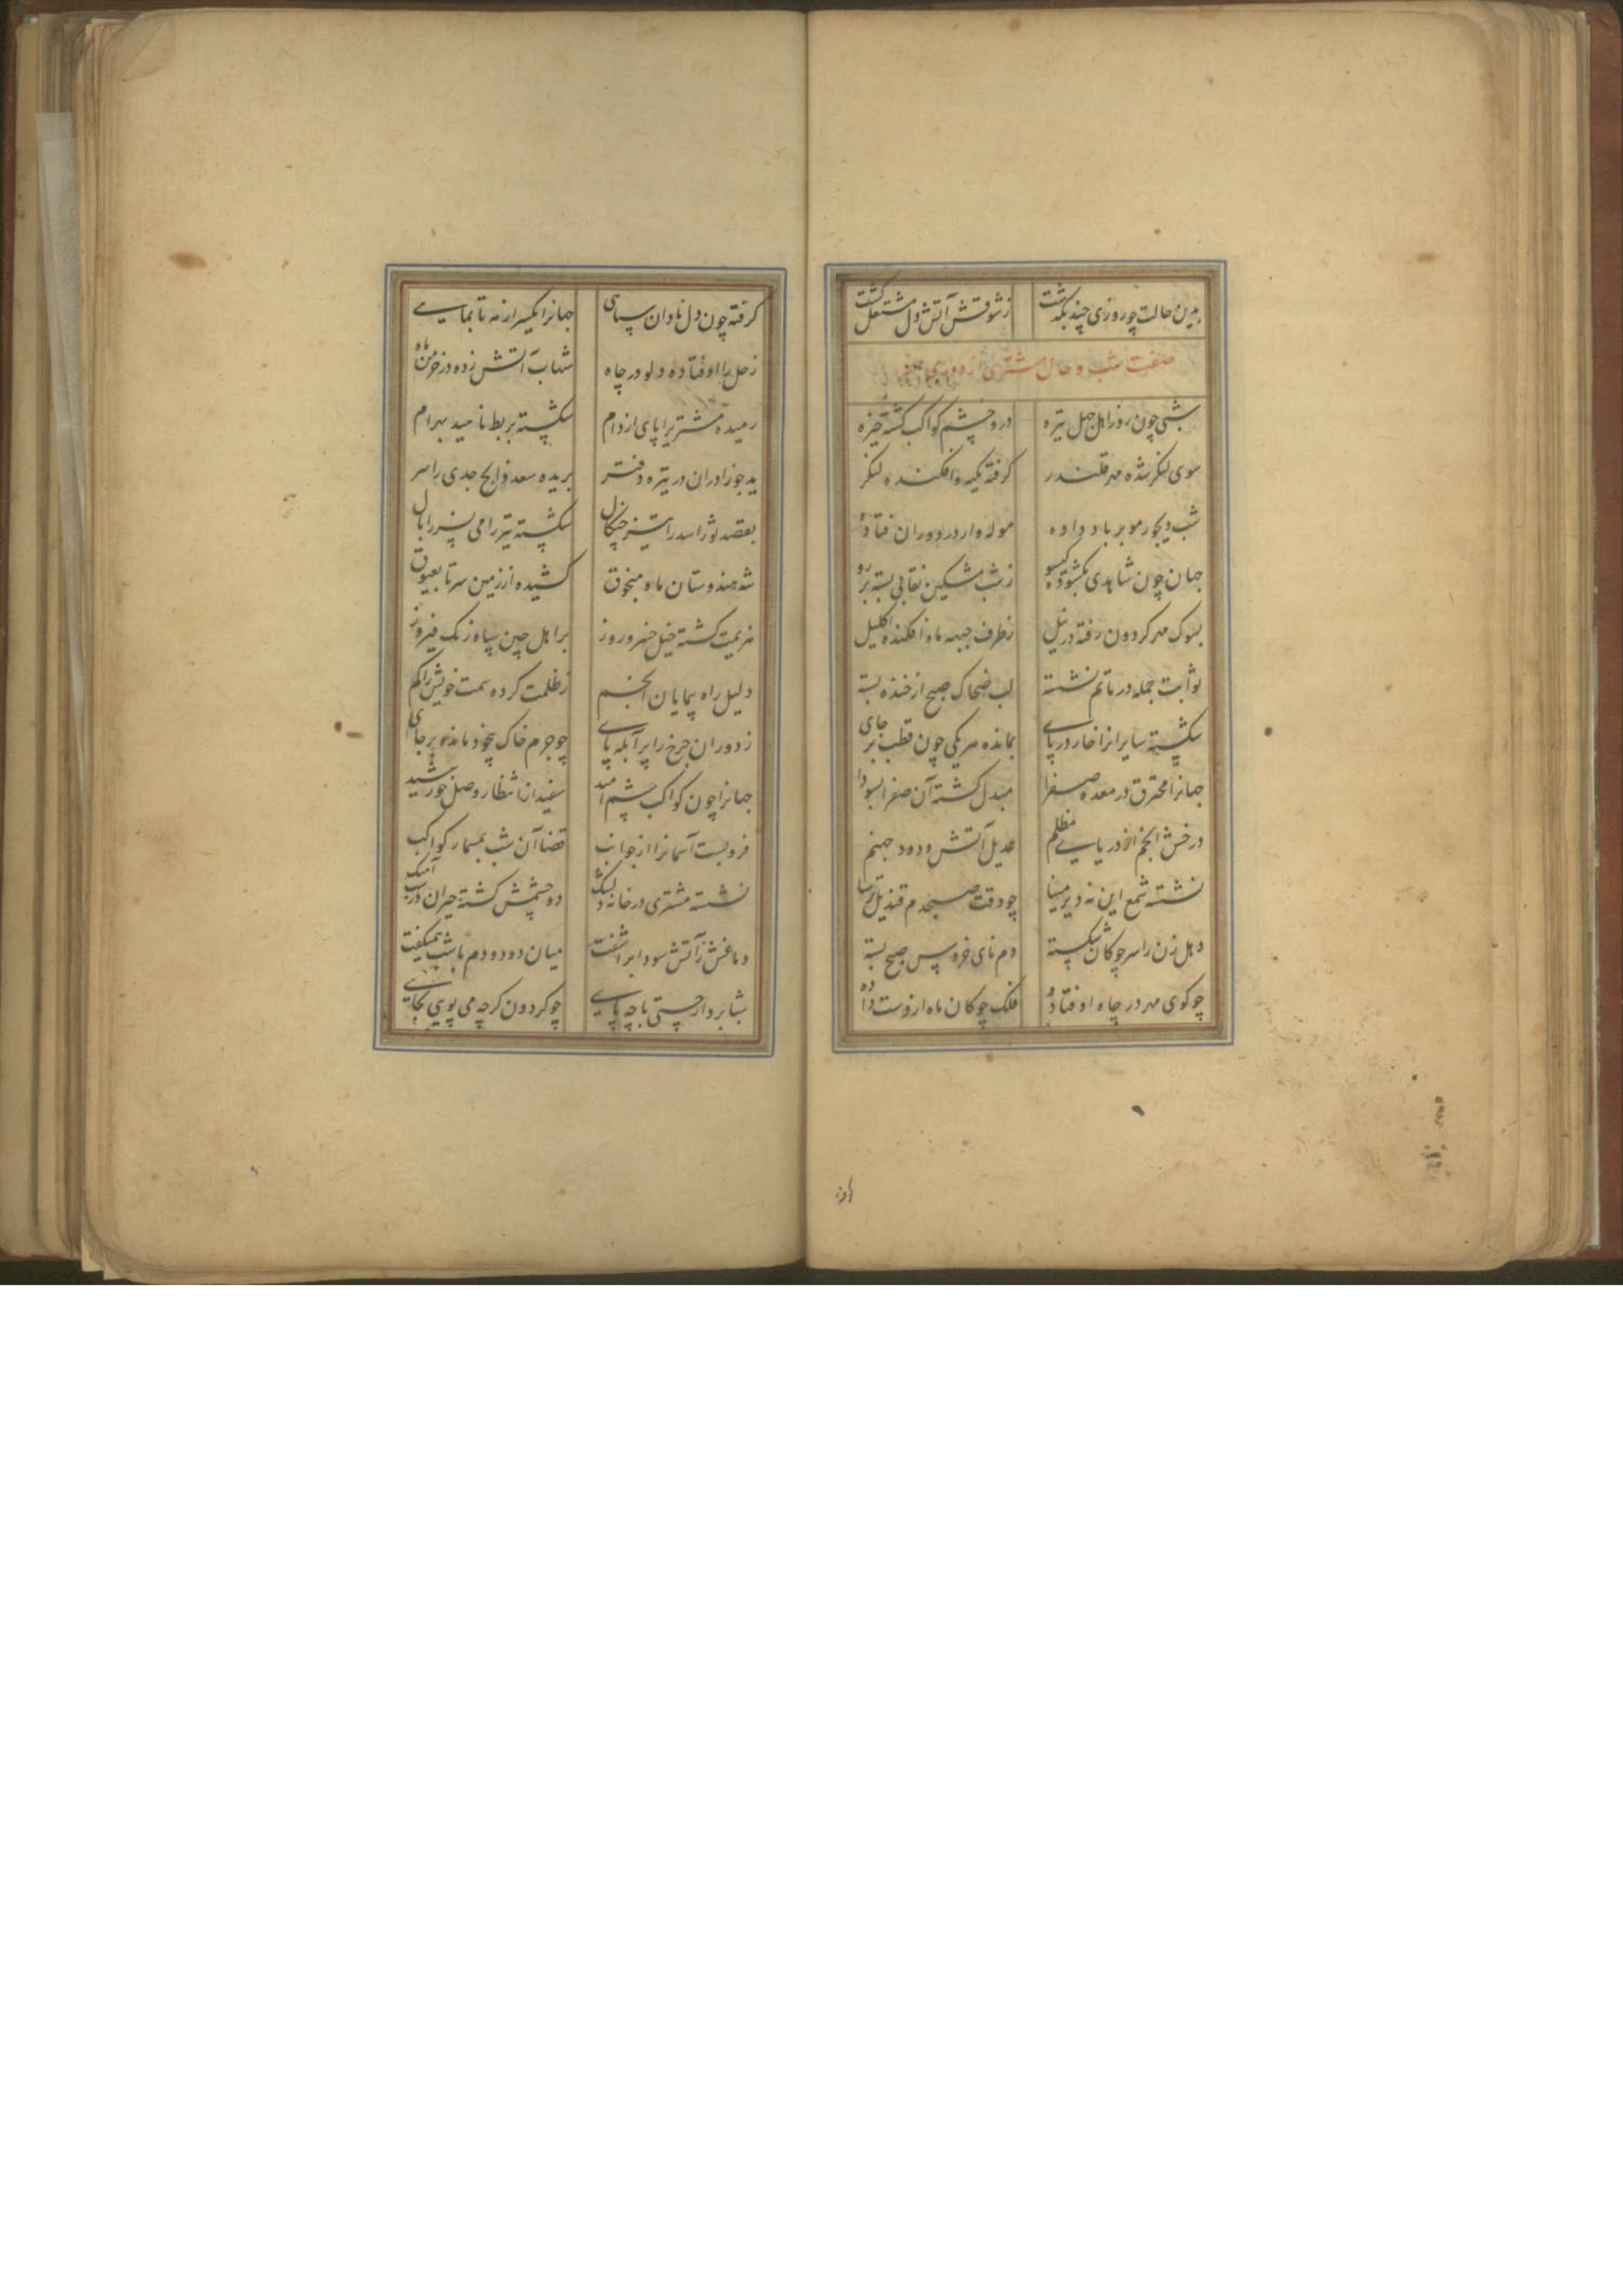 بدین حالت چو روزی چند بگذشت ز شوقش آتش دل مشتعل گشت
صفت شب و حال مشتری از دوری
شبی چون روز اهل جهل تیره درو چشم کواکب گشته خیره
سوی لنگر شده مهر قلندر گرفته تکیه و افکنده لنگر
شب دیجور مو بر باد داده موله وار در دوران فتاده
جهان چون شاهدی بگشوده گیسو ز شب مشکین نقابی بسته بر رو
بسوک مهر گردون رفته در نیل ز طرف جبهه ماه افکنده اکلیل
ثوابت جمله در ماتم نشسته لب ضحاک صبح از خنده بسته
شکسته سایرانرا خار در پای بمانده هر یکی چون قطب بر جای
جهانرا محترق در معده صفرا مبدل گشته آن صفرا بسودا
درخش انجم از دریای مظلم عدیل آتش و دود جهنم
نشسته شمع این نه دیر مینا چو وقت صبحدم قندیل ترسا
دهل زن را سر چوگان شکسته دم نای خروس صبح بسته
چو گوی مهر در چاه اوفتاده فلک چوگان ماه از دست داده
گرفته چون دل نادان سیاهی جهانرا یکسر از مه تا بماهی
زحل را اوفتاده دلو در چاه شهاب آتش زده در خرمن ماه
رمیده مشتریرا پای از دام شکسته بربط ناهید بهرام
ید جوزا دران در تیره دفتر بریده سعد ذابح جدی را سر
بقصد ثور اسد را تیز چنگال شکسته تیر رامی نسر را بال
شه هندوستان ماه منجوق کشیده از زمین سر تا بعیوق
هزیمت گشته خیل خسرو روز بر اهل چین سپاه زنگ فیروز
دلیل راه پیمایان انجم ز ظلمت کرده سمت خویش را گم
ز دوران چرخ را پر آبله پای چو جرم خاک بیخود مانده بر جای
جهانرا چون کواکب چشم امید سفید از انتظار وصل خورشید
فرو بست آسمانرا از جوانب قضا آن شب بمسمار کواکب
نشسته مشتری در خانه دلتنگ دو چشمش گشته حیران در شب آهنگ
دماغش ز آتش سودا بر آشفت میان دود و دم با شب همیگفت
شتابرو ار چستی با چه پایی چو گردون گرچه می پویی بجایی